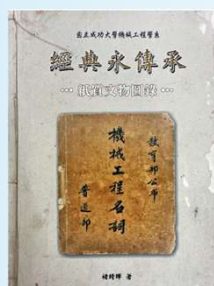 國立成功大學機械工程學系
經典永傳承
紙質文物圖錄
教育部公布
機械工程名詞
普通部
著